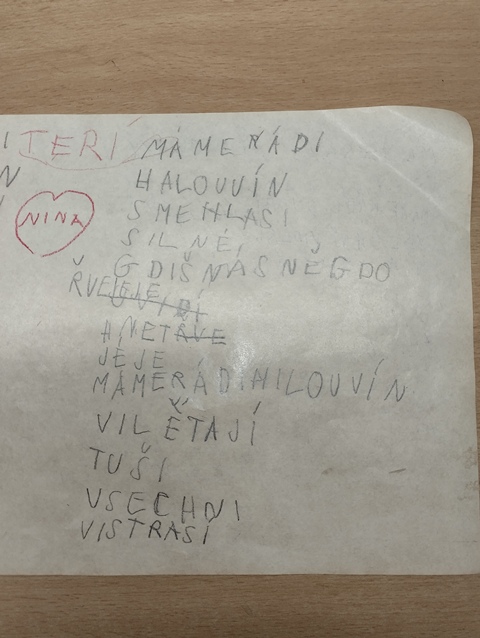 I JERÍ MÁME RÁDI
N
HALOUVÍN
NINA
SMEHLASI
SILNÉ,
GDIŠNÁSNĚGDO
ŘVEJEJE
UVIDÍ
HNETAVE
JEJE
MÁMERÁDIHILOUVÍN
VILĚTAJÍ
TUŠI
VSECHNI
VISTRASÍ